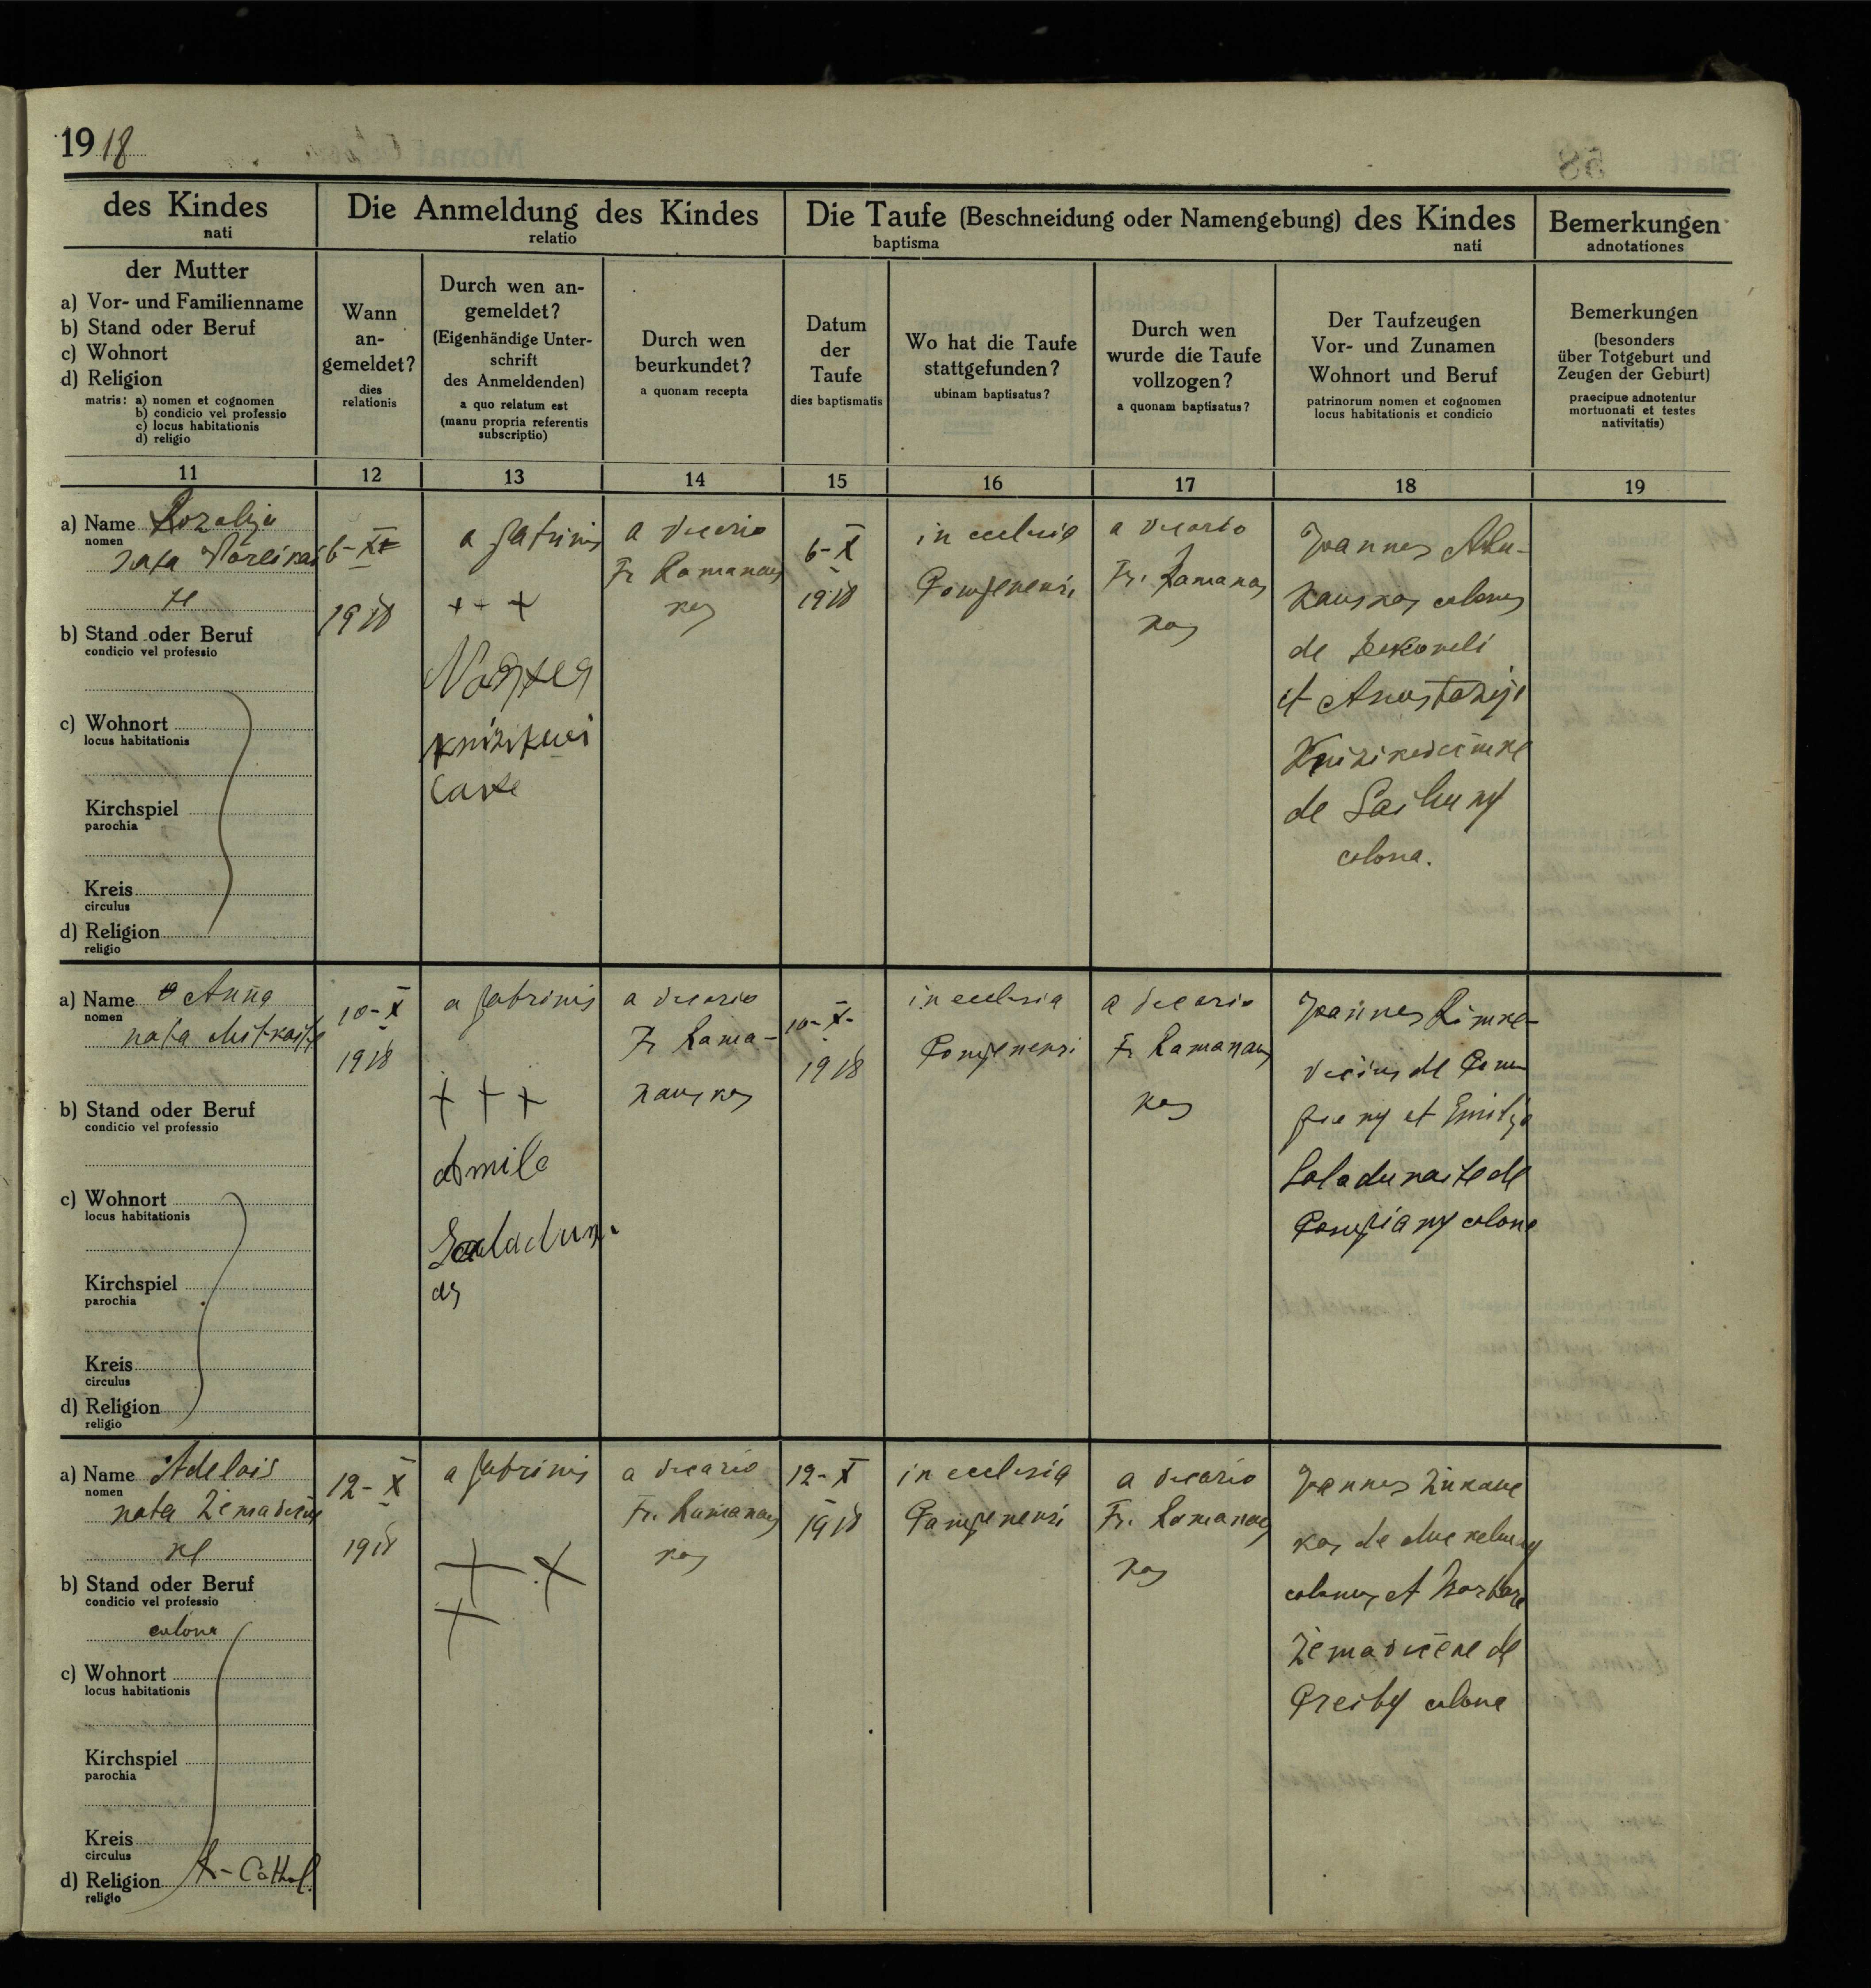 1918
des Kindes
nati
Die Anmeldung des Kindes
relatio
Die Taufe (Beschneidung oder Namengebung) des Kindes
baptisma nati
Bemerkungen
adnotationes
der Mutter
a) Vor- und Familienname
b) Stand oder Beruf
c) Wohnort
d) Religion
matris: a) nomen et cognomen
b) condicio vel professio
c) locus habitationis
d) religio
Wann
an-
gemeldet?
dies
relationis
Durch wen an-
gemeldet?
(Eigenhändige Unter-
schrift
des Anmeldenden)
a quo relatum est
(manu propria referentis
subscriptio)
Durch wen
beurkundet?
a quonam recepta
Datum
der
Taufe
dies baptismatis
Wo hat die Taufe
stattgefunden?
ubinam baptisatus?
Durch wen
wurde die Taufe
vollzogen?
a quonam baptisatus?
Der Taufzeugen
Vor- und Zunamen
Wohnort und Beruf
patrinorum nomen et cognomen
locus habitationis et condicio
Bemerkungen
(besonders
über Totgeburt und
Zeugen der Geburt)
praecipue adnotentur
mortuonati et testes
nativitatis)
11 12 13 14 15 16 17 18 19
a) Name Rozalija
nomen
nata
te
b) Stand oder Beruf
condicio vel professio
c) Wohnort
locus habitationis
Kirchspiel
parochia
Kreis
circulus
d) Religion
religio
6-X
1918
a patrinis
+ + +
a vicario
Fr. Ramanaus
kas
6-X
1918
in ecclesia
Pompenensi
a vicario
Fr. Ramanas
kas
Joannes
kauskas colonus
de
et Anastazija
de
colona.
a) Name Anna
nomen
nata
b) Stand oder Beruf
condicio vel professio
c) Wohnort
locus habitationis
Kirchspiel
parochia
Kreis
circulus
d) Religion
religio
10-X
1918
a patrinis
+ + +
a vicario
Fr Rama-
nauskas
10-X-
1918
in ecclesia
Pompenensi
a vicario
Fr Ramanaus
kas
Joannes Rimke-
vicius de Pom
et Emilija
Saladunaite de
colona
a) Name Adelais
nomen
nata Zemaviciu
ke
b) Stand oder Beruf
condicio vel professio
colona
c) Wohnort
locus habitationis
Kirchspiel
parochia
Kreis
circulus
d) Religion R-Cathol.
religio
12-X
1918
a patrinis
+ +
+
a vicario
Fr. Ramanaus
kas
12-X
1918
in ecclesia
Pompenensi
a vicario
Fr. Ramanaus
kas
Joannes Zukaus
kas de
colonus et Barbara
Zemaviciene de
colona